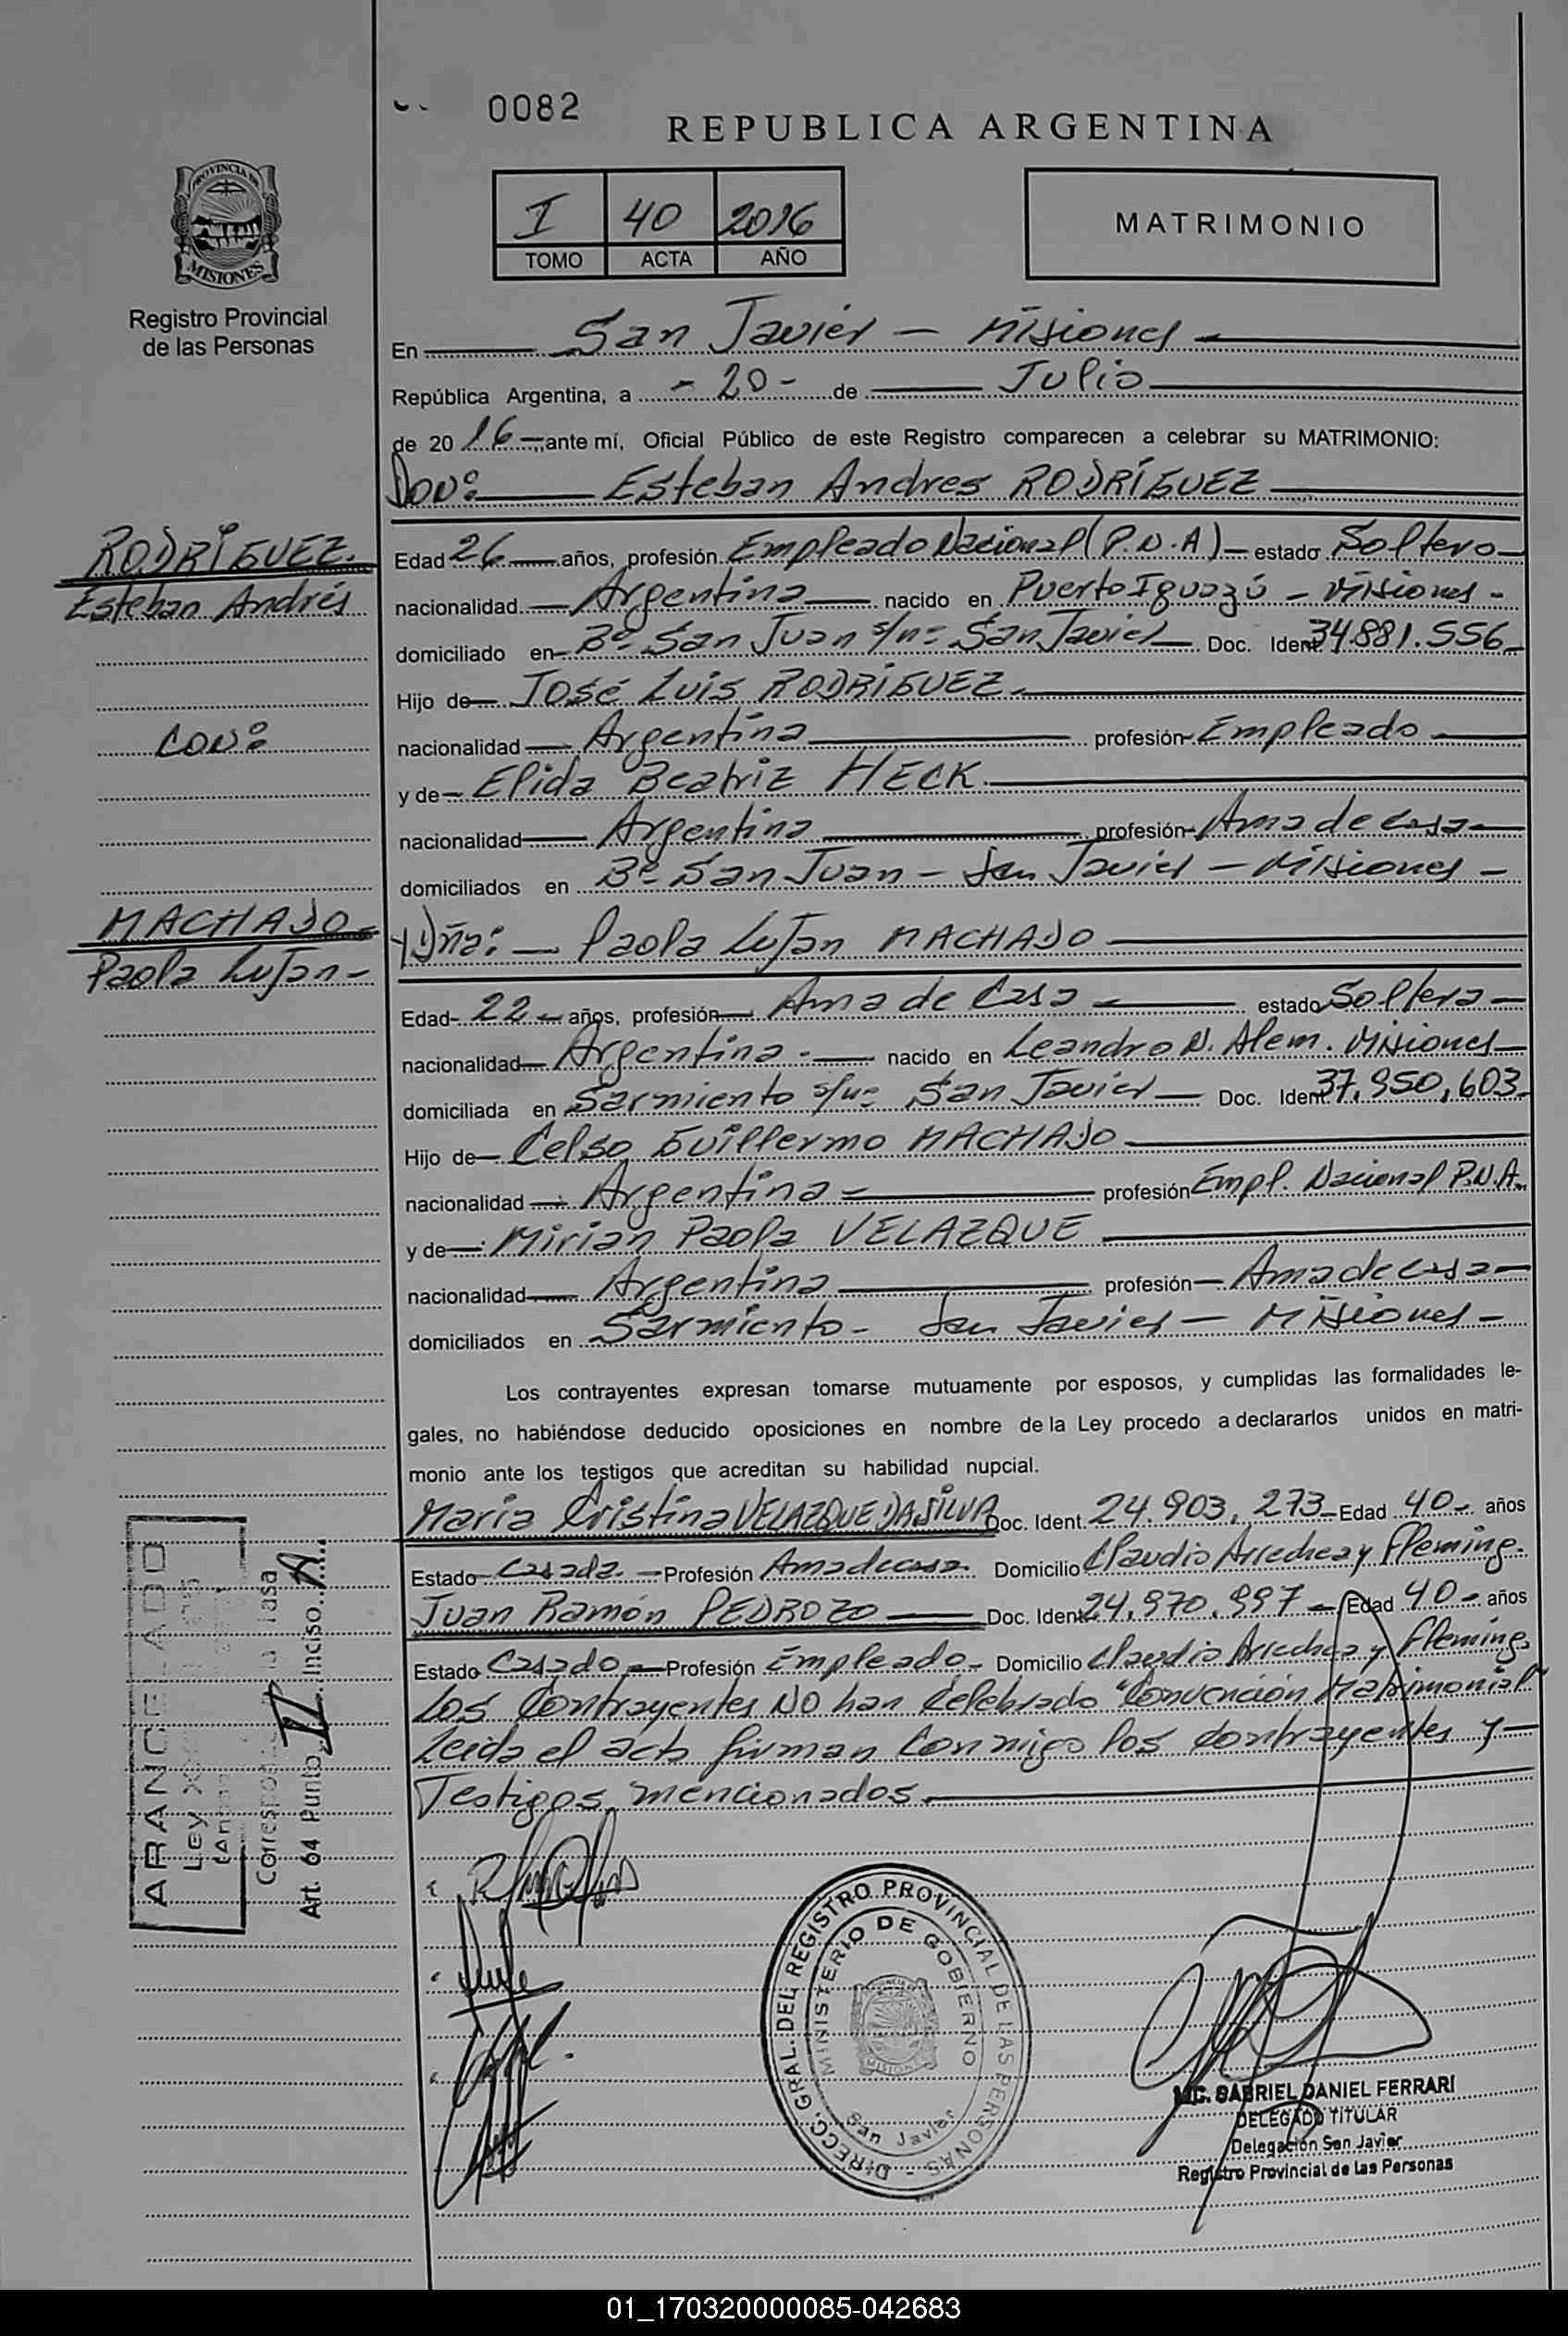 0082
REPUBLICA ARGENTINA
PROVINCIA DE
MISIONES
Registro Provincial
de las Personas
I 40 2016
TOMO ACTA AÑO
MATRIMONIO
En San Javier - Misiones
República Argentina, a - 20 - de Julio
de 20 16 ante mí, Oficial Público de este Registro comparecen a celebrar su MATRIMONIO:
Don: Esteban Andres RODRÍGUEZ
RODRÍGUEZ.
Esteban Andrés
Edad 26 años, profesión Empleado Nacional (P.N.A) estado Soltero
nacionalidad Argentina nacido en Puerto Iguazú - Misiones -
domiciliado en Bº San Juan s/nº San Javier Doc. Ident. 34.881.556
Hijo de José Luis RODRÍGUEZ.
CON:
nacionalidad Argentina profesión Empleado
y de Elida Beatriz HECK
nacionalidad Argentina profesión Ama de casa
domiciliados en Bº San Juan - San Javier - Misiones -
MACHADO
Paola Lujan -
y Dña: Paola Lujan MACHADO
Edad 22 años, profesión Ama de Casa estado Soltera
nacionalidad Argentina nacido en Leandro N. Alem. Misiones
domiciliada en Sarmiento s/nº San Javier Doc. Ident. 37,950,603
Hijo de Celso Guillermo MACHADO
nacionalidad Argentina profesión Empl. Nacional P.N.A.
y de Mirian Paola VELAZQUE
nacionalidad Argentina profesión Ama de casa
domiciliados en Sarmiento - San Javier - Misiones -
Los contrayentes expresan tomarse mutuamente por esposos, y cumplidas las formalidades le-
gales, no habiéndose deducido oposiciones en nombre de la Ley procedo a declararlos unidos en matri-
monio ante los testigos que acreditan su habilidad nupcial.
Maria Cristina VELAZQUE DA SILVA Doc. Ident. 24.903,273 Edad 40 años
Estado Casada Profesión Ama de casa Domicilio Claudio Arrechea y Fleming.
Juan Ramón PEDROZO Doc. Ident. 24,970,997 Edad 40 años
Estado Casado Profesión Empleado Domicilio Claudio Arrechea y Fleming
Los Contrayentes NO han Celebrado "Convención Matrimonial"
Leida el acta firman conmigo los contrayentes y
Testigos mencionados
ARANCELADO
Ley
Corresponde la Tasa
Art. 64 Punto II Inciso A
DIRECC. GRAL. DEL REGISTRO PROVINCIAL DE LAS PERSONAS -
MINISTERIO DE GOBIERNO
San Javier
LIC. GABRIEL DANIEL FERRARI
DELEGADO TITULAR
Delegación San Javier
Registro Provincial de las Personas
01_170320000085-042683